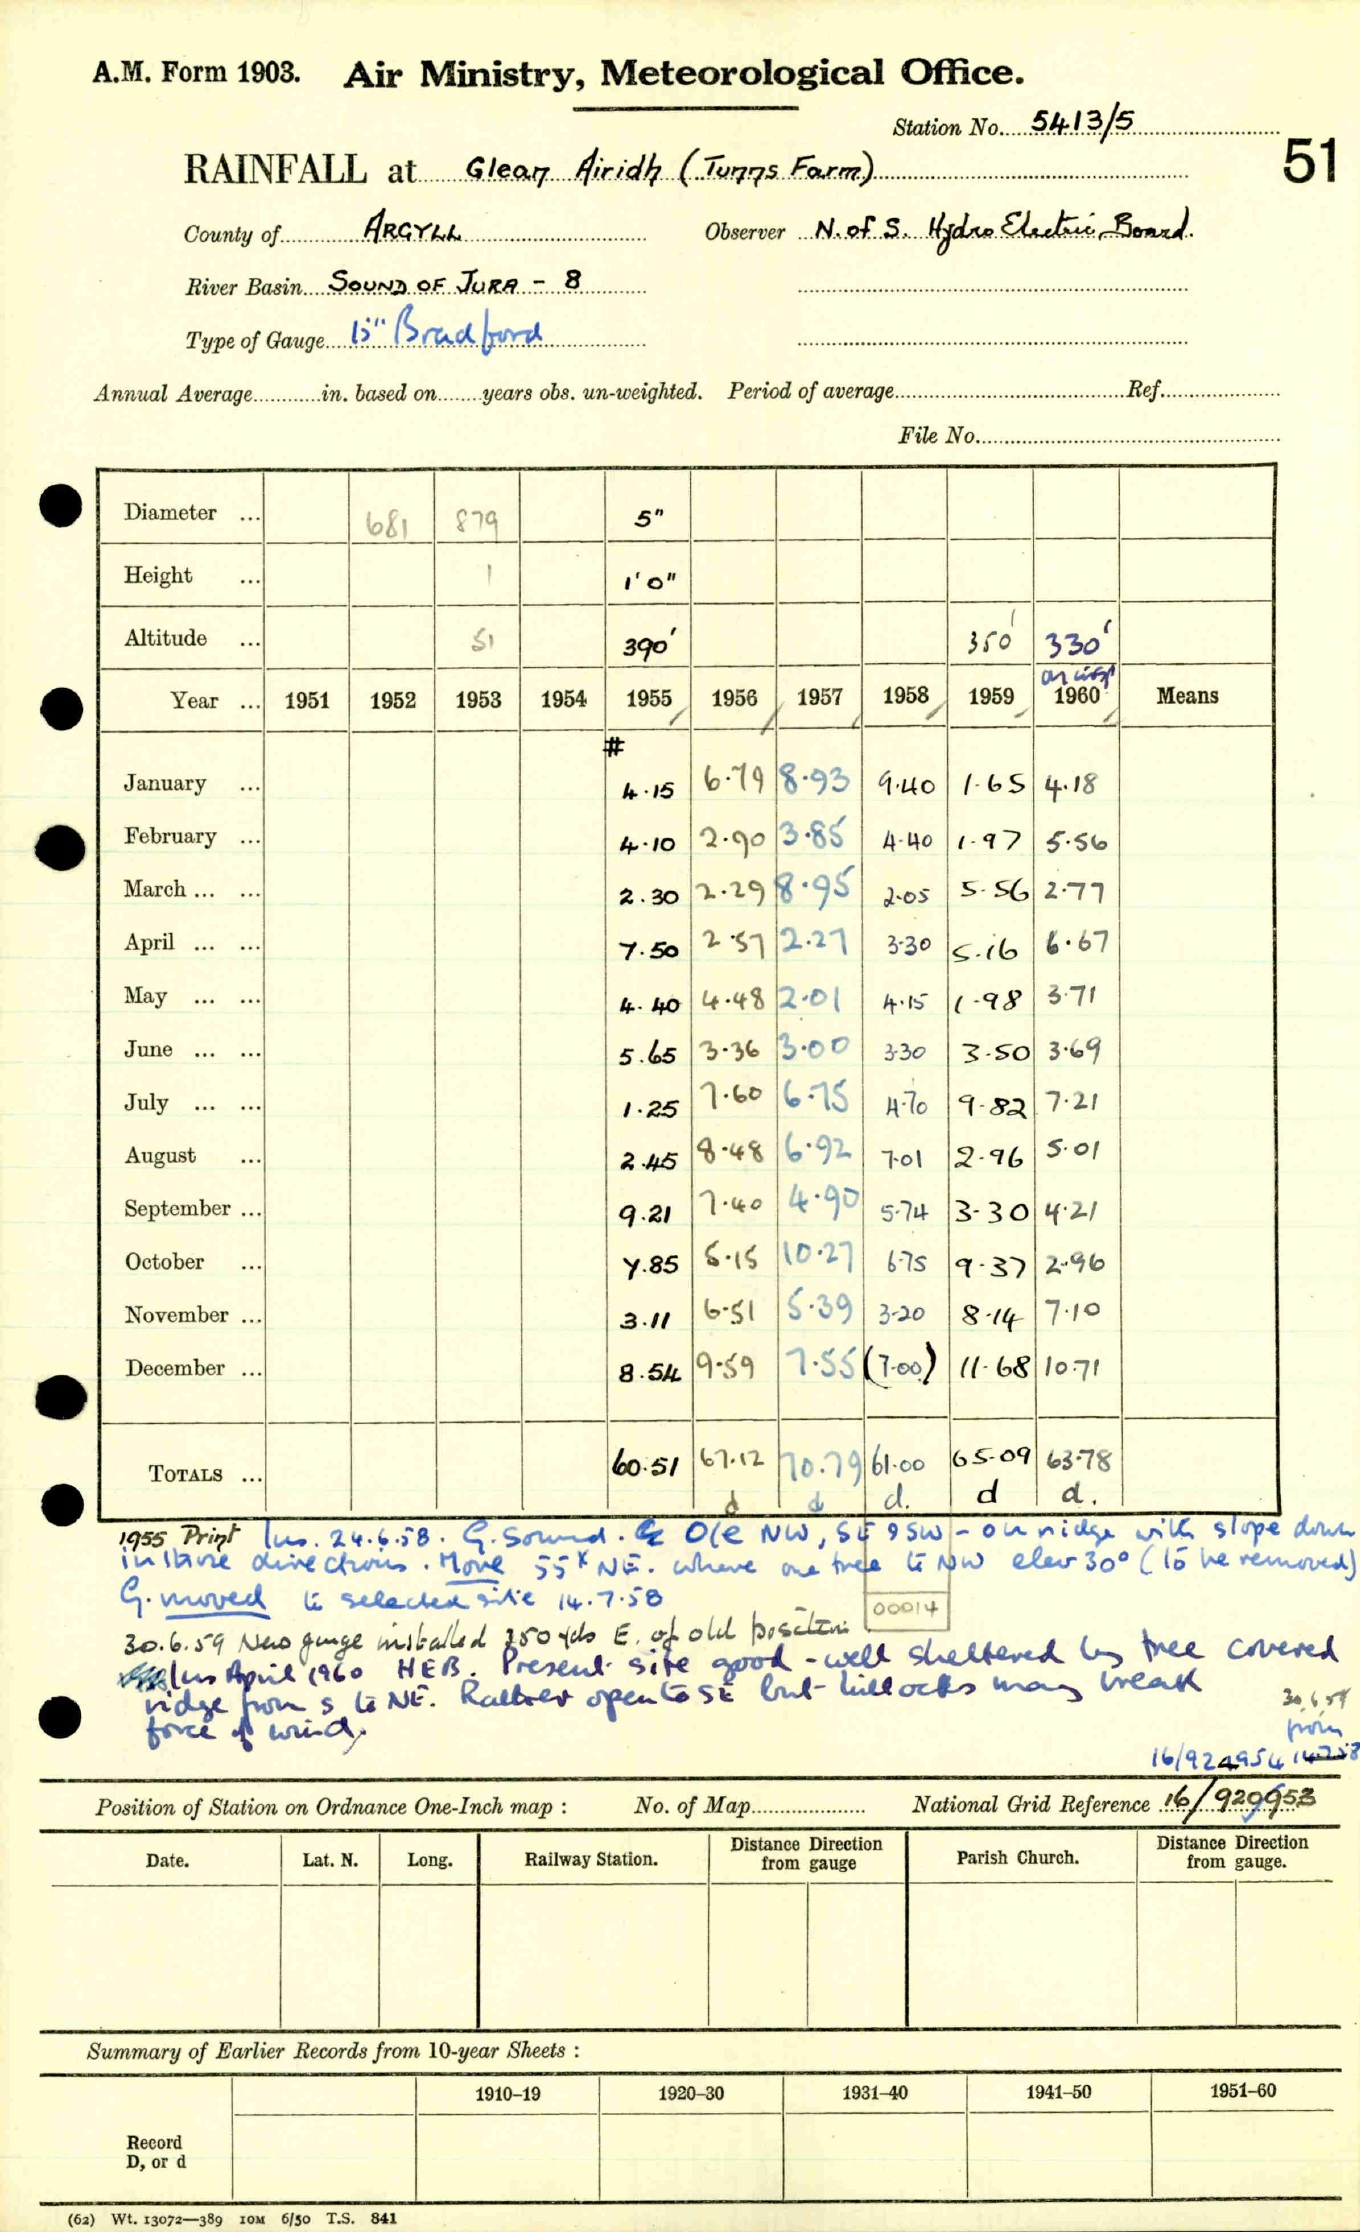 A.M. Form 1903. Air Ministry, Meteorological Office.
Station No. 5413/5
51
RAINFALL at Glean Airidh (Tunns Farm)
County of ARGYLL Observer N. of S. Hydro Electric Board.
River Basin SOUND OF JURA - 8
Type of Gauge 15" Bradford
Annual Average in. based on years obs. un-weighted. Period of average Ref.
File No.
Diameter ... 681 879 5"
Height ... 1 1' 0"
Altitude ... 51 390' 350' 330'
on insp
Year ... 1951 1952 1953 1954 1955 1956 1957 1958 1959 1960 Means
#
January ... 4.15 6.79 8.93 9.40 1.65 4.18
February ... 4.10 2.90 3.85 4.40 1.97 5.56
March ... ... 2.30 2.29 8.95 2.05 5.56 2.77
April ... ... 7.50 2.57 2.27 3.30 5.16 6.67
May ... ... 4.40 4.48 2.01 4.15 1.98 3.71
June ... ... 5.65 3.36 3.00 3.30 3.50 3.69
July ... ... 1.25 7.60 6.75 4.70 9.82 7.21
August ... 2.45 8.48 6.92 7.01 2.96 5.01
September ... 9.21 7.40 4.90 5.74 3.30 4.21
October ... 7.85 5.15 10.27 6.75 9.37 2.96
November ... 3.11 6.51 5.39 3.20 8.14 7.10
December ... 8.54 9.59 7.55 (7.00) 11.68 10.71
TOTALS ... 60.51 67.12 70.79 61.00 65.09 63.78
d d d. d d.
1955 Print Ins. 24.6.58. G. Sound. G O/e NW, SE & SW - on ridge with slope down
in these directions. Move 55x NE. where one tree to NW elev 30° (to be removed)
G. moved to selected site 14.7.58
00014
30.6.59 New gauge installed 350 yds E. of old position
Ins April 1960 HEB. Present site good - well sheltered by tree covered
ridge from S to NE. Rather open to SE but hillocks may break
force of wind.
30.6.59
from
16/924954 14.7.58
Position of Station on Ordnance One-Inch map : No. of Map National Grid Reference 16/920953
Date. Lat. N. Long. Railway Station. Distance Direction from gauge Parish Church. Distance Direction from gauge.
Summary of Earlier Records from 10-year Sheets :
1910–19 1920–30 1931–40 1941–50 1951–60
Record
D, or d
(62) Wt. 13072—389 10M 6/50 T.S. 841